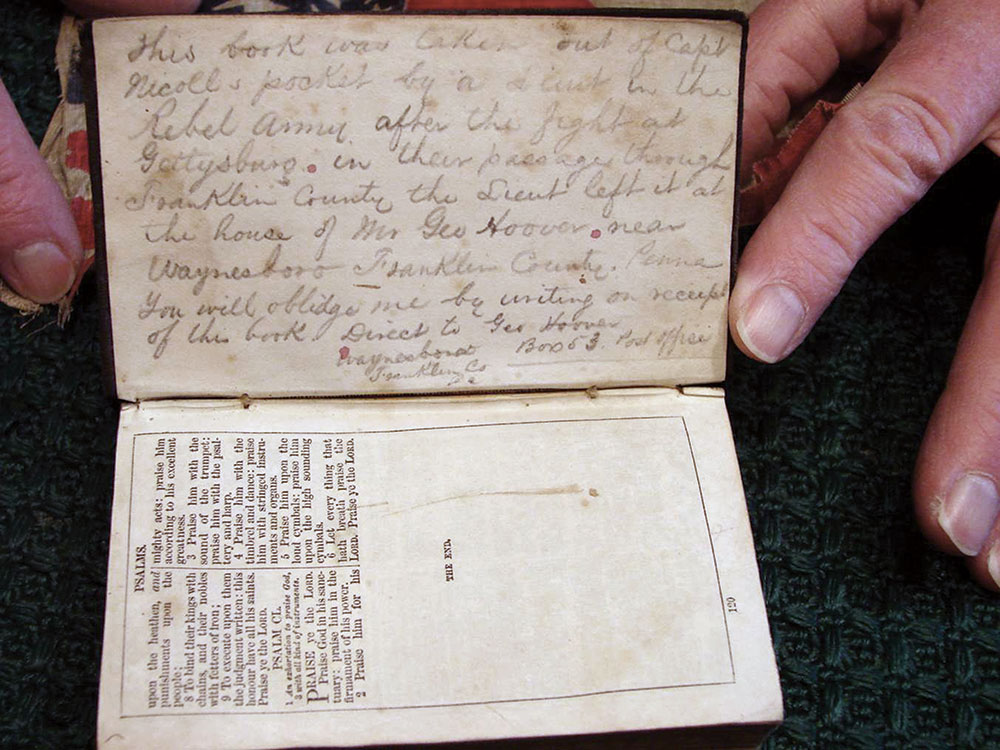 This book was taken out of Capt
Nicolls pocket by a Lieut in the
Rebel Army after the fight at
Gettysburg. in their passage through
Franklin County the Lieut left it at
the house of Mr Geo Hoover near
Waynesboro Franklin County. Penna
You will oblidge me by writing on receipt
of this book. Direct to Geo Hoover
Waynesboro Box 53. Post Office
Franklin Co
PSALMS.
upon the heathen, and
punishments upon the
people;
8 To bind their kings with
chains, and their nobles
with fetters of iron;
9 To execute upon them
the judgment written: this
honour have all his saints.
Praise ye the LORD.
PSALM CL.
1 An exhortation to praise God,
3 with all kind of instruments.
PRAISE ye the LORD.
Praise God in his sanc-
tuary: praise him in the
firmament of his power.
2 Praise him for his
mighty acts: praise him
according to his excellent
greatness.
3 Praise him with the
sound of the trumpet:
praise him with the psal-
tery and harp.
4 Praise him with the
timbrel and dance: praise
him with stringed instru-
ments and organs.
5 Praise him upon the
loud cymbals: praise him
upon the high sounding
cymbals.
6 Let every thing that
hath breath praise the
LORD. Praise ye the LORD.
THE END.
120